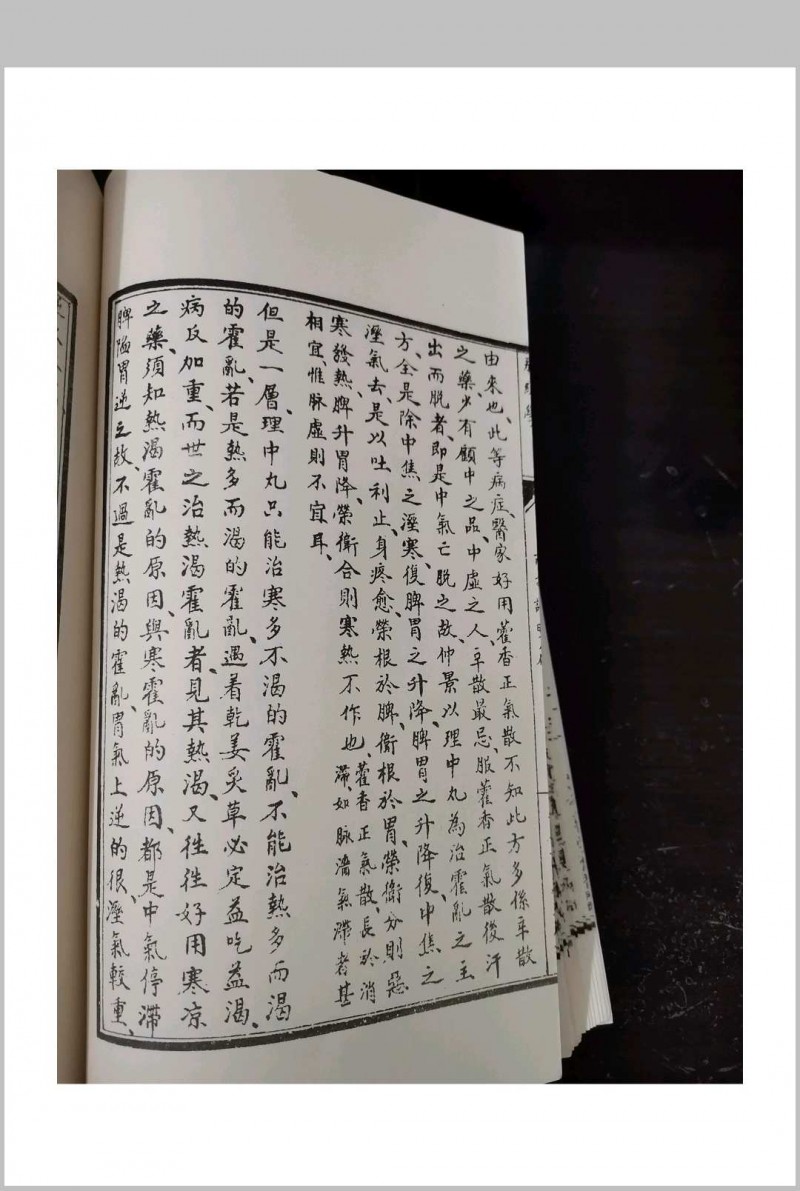 由來也、此等病症、醫家好用藿香正氣散不知此方多係辛散
之藥、少有顧中之品、中虛之人、辛散最忌、服藿香正氣散後汗
出而脫者、即是中氣亡脫之故、仲景以理中丸為治霍亂之主
方、全是除中焦之溼寒、復脾胃之升降、脾胃之升降復、中焦之
溼氣去、是以吐利止、身疼愈、榮根於脾、衛根於胃、榮衛分則惡
寒發熱、脾升胃降、榮衛合則寒熱不作也 藿香正氣散、長於消
滯、如脉濇氣滯者甚
相宜、惟脉虛則不宜耳、
但是一層、理中丸只能治寒多不渴的霍亂、不能治熱多而渴
的霍亂、若是熱多而渴的霍亂、遇着乾姜炙草必定益吃益渴、
病反加重、而世之治熱渴霍亂者、見其熱渴、又往往好用寒凉
之藥、須知熱渴霍亂的原因、與寒霍亂的原因、都是中氣停滯
脾陷胃逆之故、不過是熱渴的霍亂、胃氣上逆的很、溼氣較重、